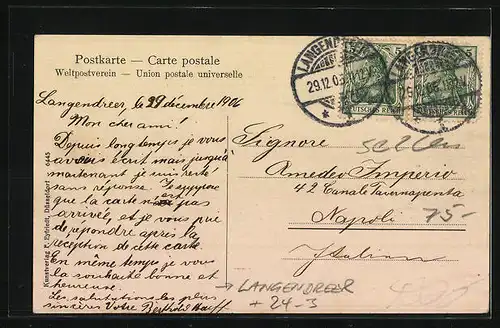 Postkarte – Carte postale
Weltpostverein – Union postale universelle
LANGENDREER
29.12.06
5
DEUTSCHES REICH
5
Langendreer, le 29 décembre 1906
Mon cher ami!
Depuis longtemps je vous
avais écrit mais jusqu'à
maintenant je suis resté
sans réponse. Je suppose
que la carte n'est pas
arrivée, et je vous prie
de répondre après la
réception de cette carte.
En même temps je vous
la souhaite bonne et
heureuse.
Les salutations les plus
sincères Votre Berthold
Signore
Amedeo Imperio
42 Canale Tavernapenta
Napoli
Italien
selten
75-
→ LANGENDREER
+ 24-3
Kunstverlag F. Düsseldorf 6445